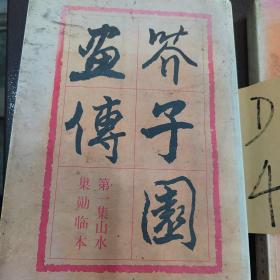 芥子園
畫傳
第一集山水
巢勋临本
D
4